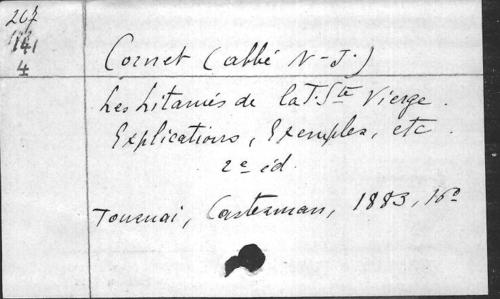 267
141
4
Cornet (abbé N-J.)
Les Litanies de la T. Ste Vierge.
Explications, Exemples, etc.
2e éd.
Tournai, Casterman, 1883, 16o